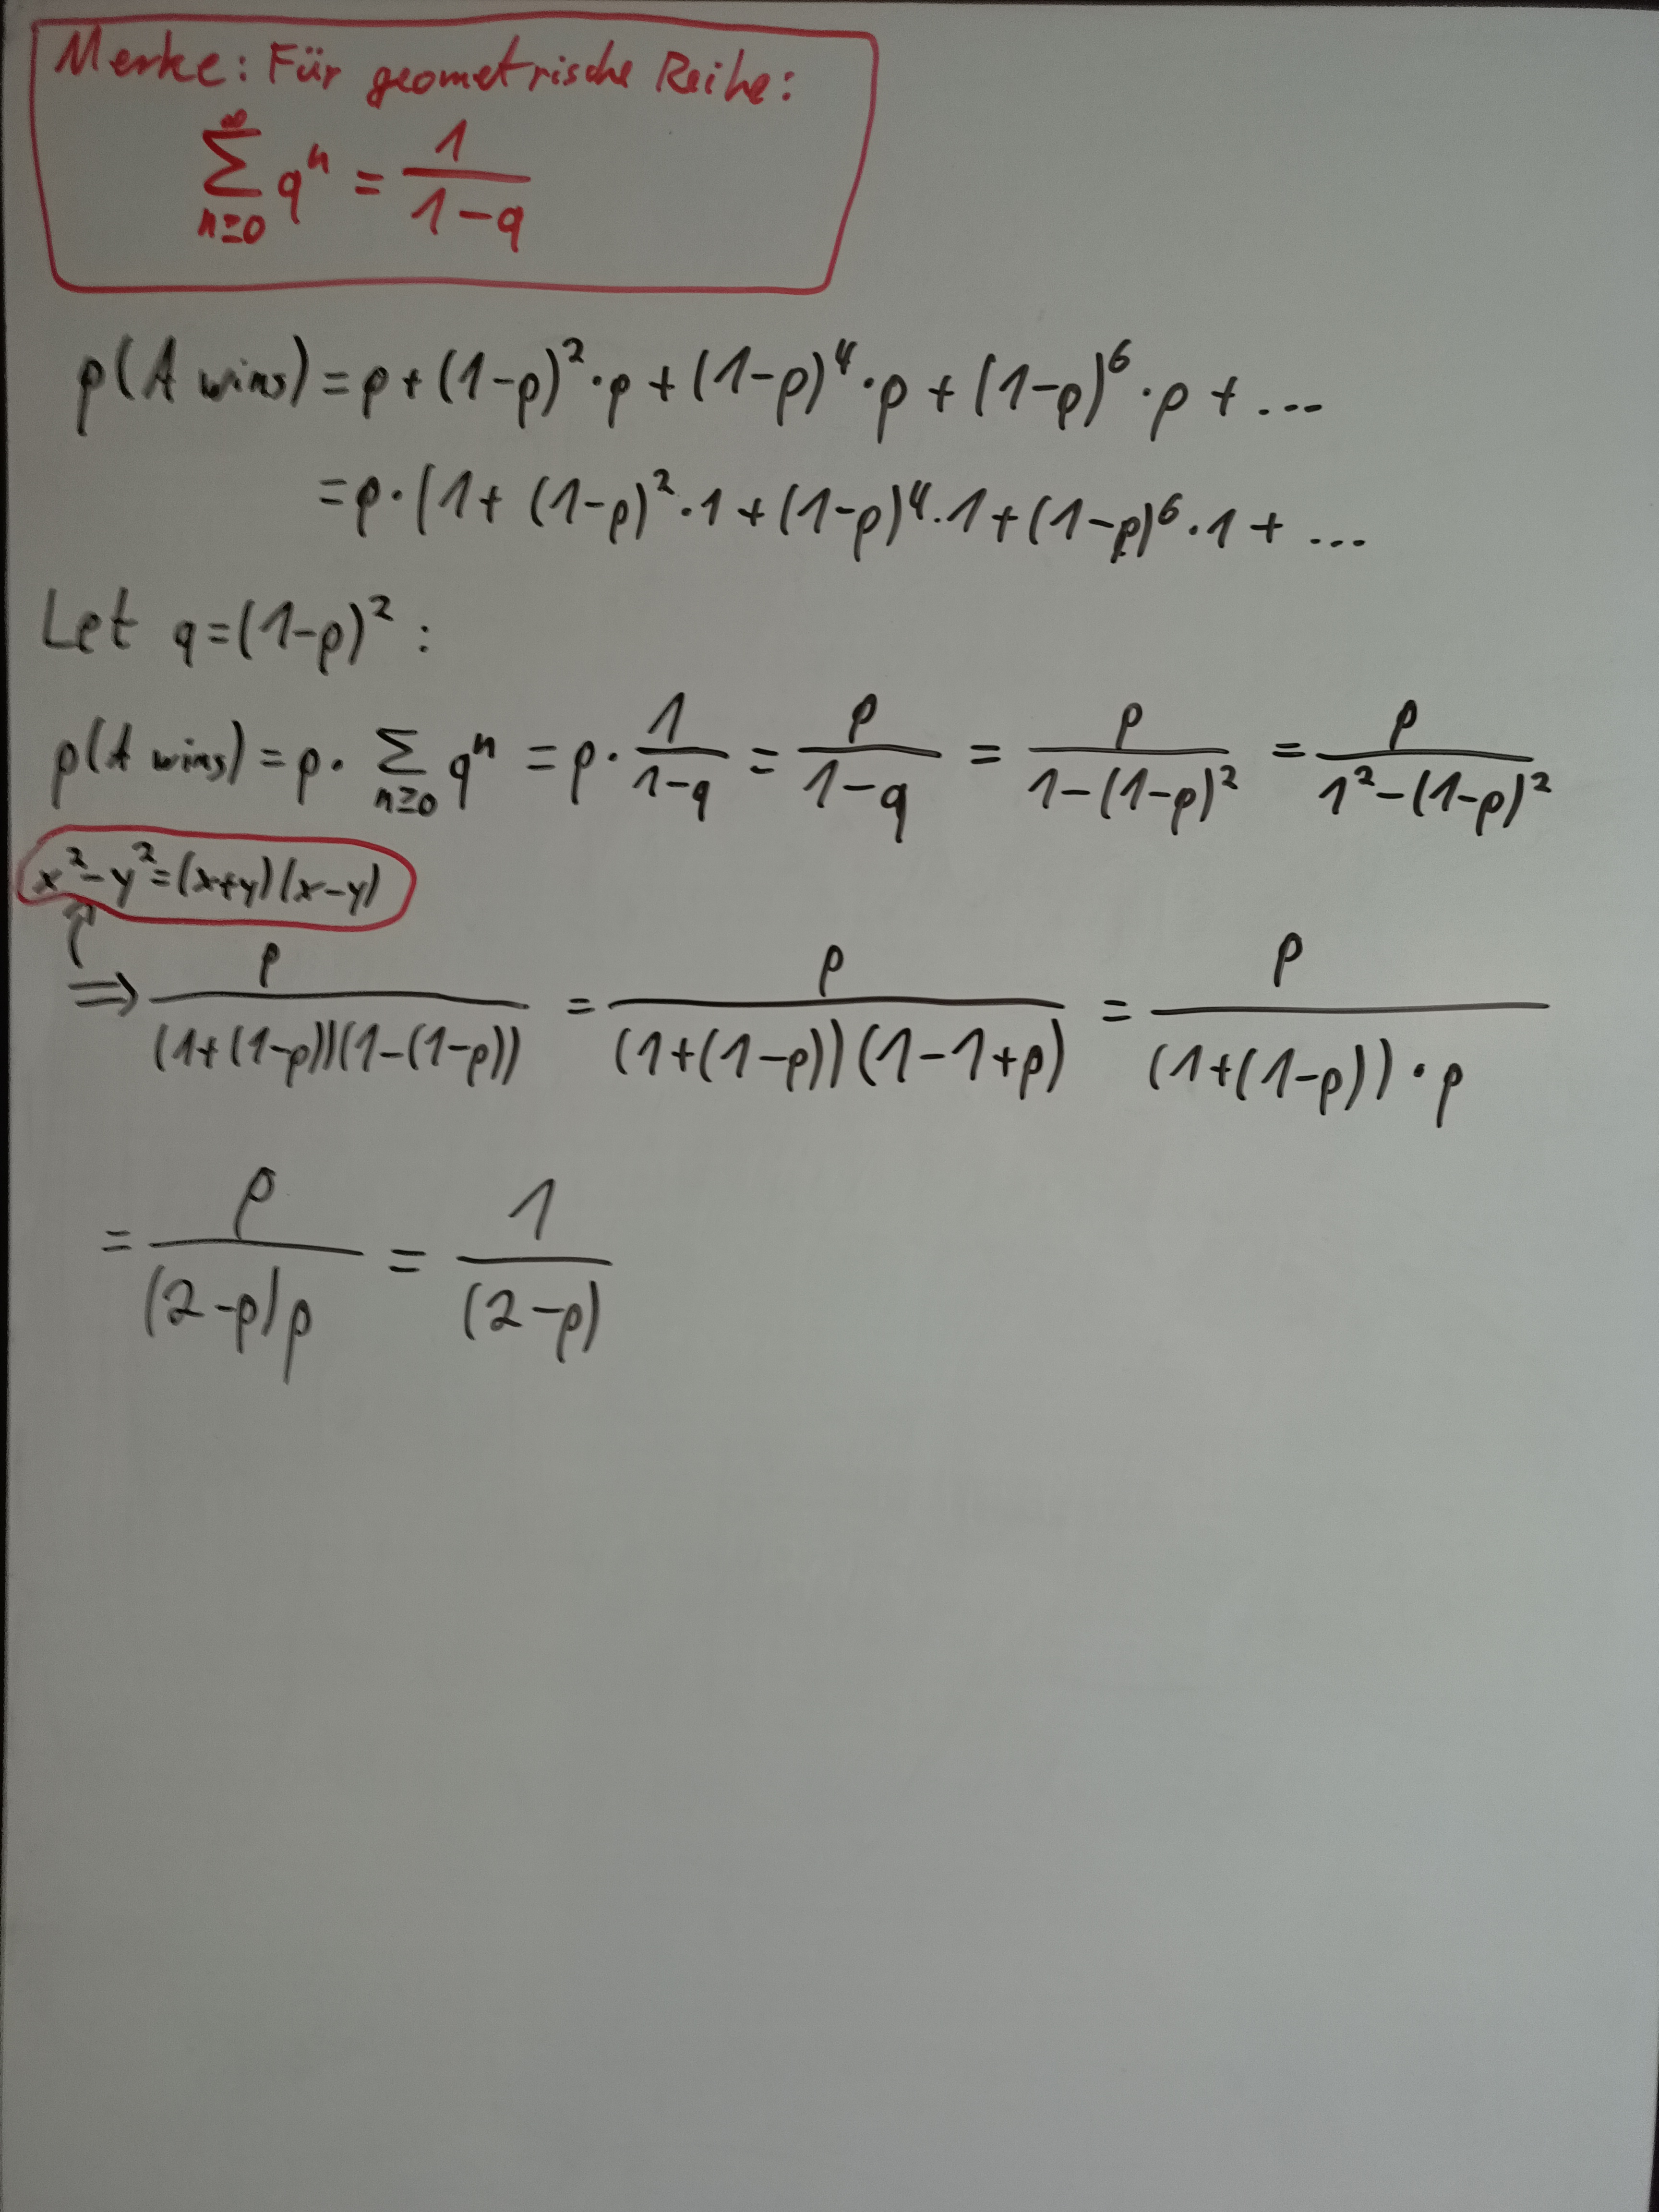 Merke: Für geometrische Reihe:
∞
∑ qⁿ = 1/(1-q)
n≥0
p(A wins) = p + (1-p)²·p + (1-p)⁴·p + (1-p)⁶·p + ...
= p·(1 + (1-p)²·1 + (1-p)⁴·1 + (1-p)⁶·1 + ...
Let q=(1-p)²:
p(A wins) = p· ∑ₙ≥₀ qⁿ = p · 1/(1-q) = p/(1-q) = p/(1-(1-p)²) = p/(1²-(1-p)²)
x²-y²=(x+y)(x-y)
⇒ p/((1+(1-p))(1-(1-p))) = p/((1+(1-p))(1-1+p)) = p/((1+(1-p))·p)
= p/((2-p)p) = 1/(2-p)